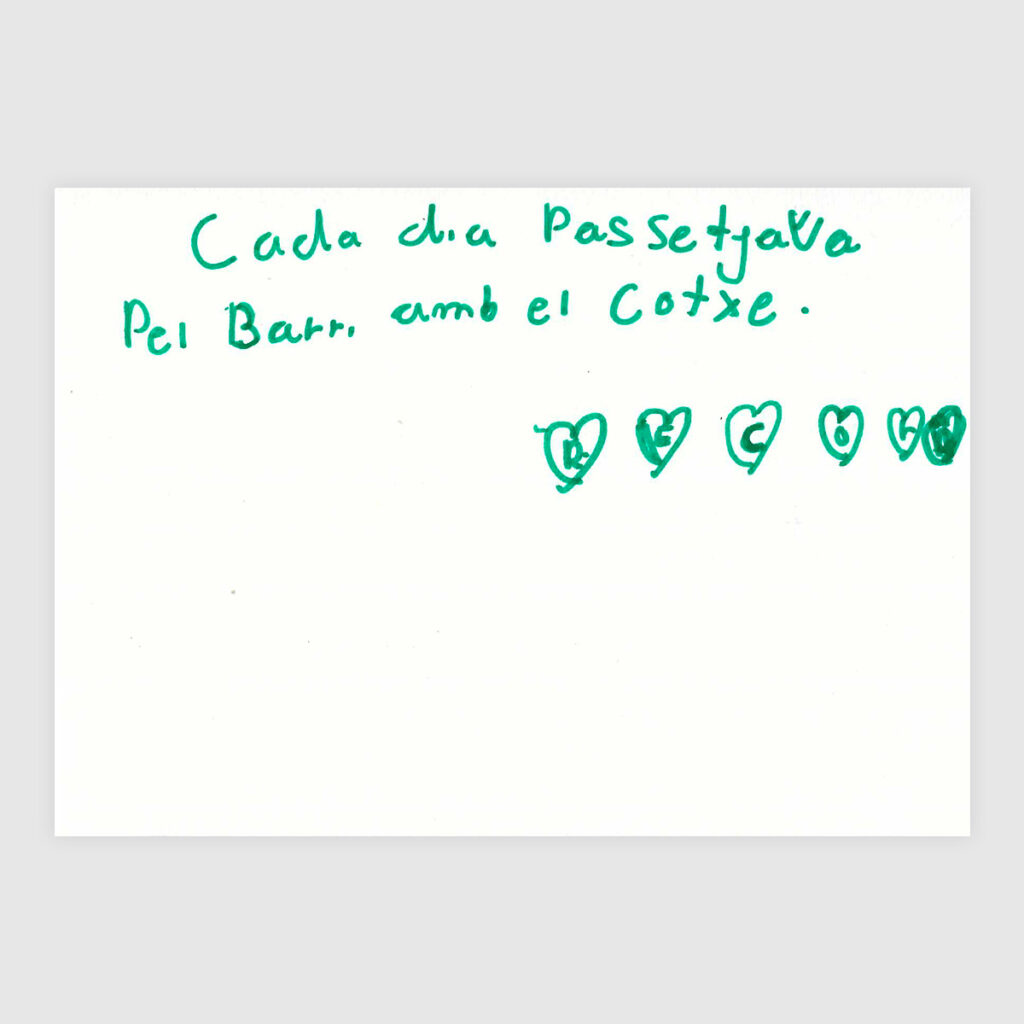 Cada dia Passetjava
Pel Barri amb el Cotxe.
R E C O